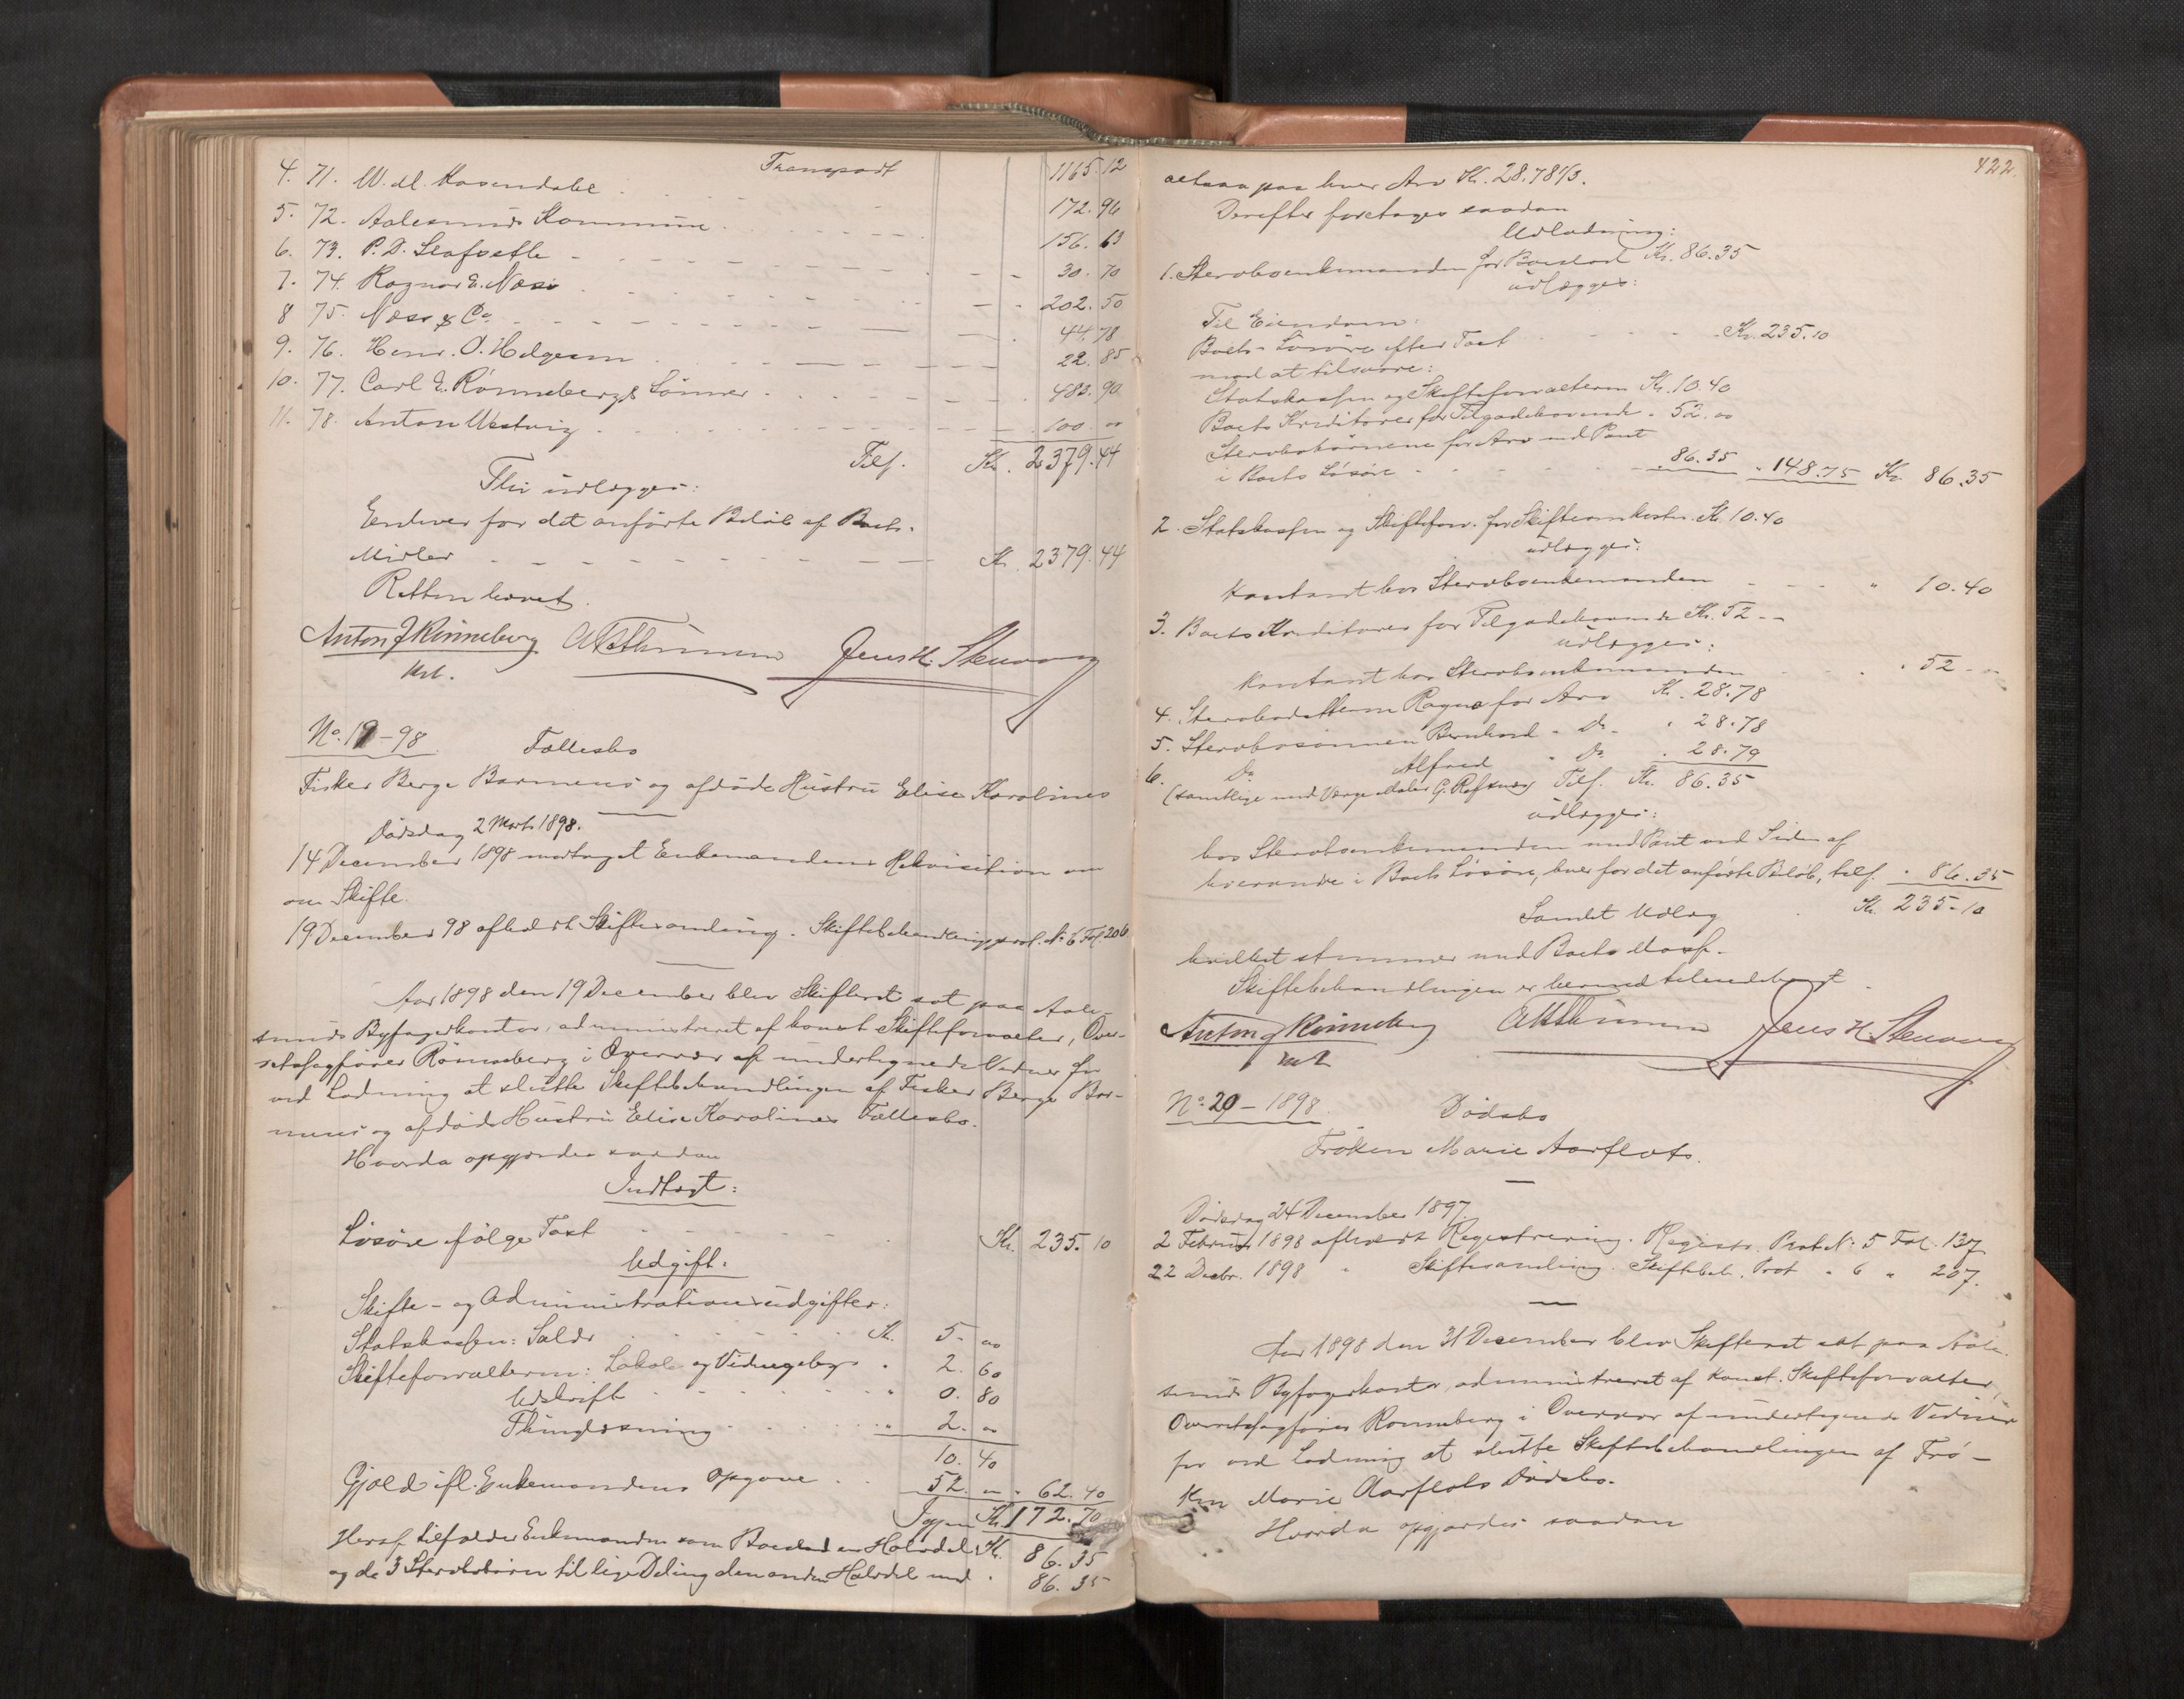 Transport 1165.12
4. 71. W. M. Rosendahl . . . 172.96
5. 72. Aalesunds Kommune . . . 156.63
6. 73. P. D. Slafsetle - - - 30.70
7. 74. Ragnar E. Næss . . . 202.50
8 75. Næss & Co. - - - 44.78
9. 76. Henr. O. Helgesen . . . 22.85
10. 77. Carl E. Rønnebergs Sønner . . . 483.90
11. 78. Anton Westvig . . . 100. "
Tils. Kr. 2379.44
Thi udlægges:
Enhver for det anførte Beløb af Boets
Midler - - - Kr. 2379.44
Retten hævet.
Anton J Rönneberg Jens H. Stenvaag
kst.
No. 19-98.
Fællesbo
Fisker Berge Barmens og afdøde Hustru Elise Karolines
Dødsdag 2 Marts 1898.
14 December 1898 modtaget Enkemandens Rekvisition om
om Skifte.
19 December 98 afholdt Skiftesamling. Skiftebehandlingsprot. No 6 Fol. 206
Aar 1898 den 19 December blev Skifteret sat paa Aale-
sunds Byfogedkontor, administreret af konst. Skifteforvalter, Over-
retssagfører Rønneberg i Overvær af undertegnede Vidner for
ved Lodning at slutte Skiftebehandlingen af Fisker Berge Bar-
mens og afdøde Hustru Elise Karolines Fællesbo.
Hvorda opgjordes saadan
Indtægt:
Løsøre ifølge Taxt - - - Kr. 235.10
Udgift:
Skifte- og Administrationsudgifter:
Statskassen: Saldr . . . Kr. 5. "
Skifteforvalteren: Lokale og Vidnegebyr " 2.60
Udskrift - - - " 0.80
Thinglæsning . . . " 2. "
10.40
Gjæld ifl. Enkemandens Opgave . . 52. " " 62.40
Igjen Kr. 172.70
Heraf tilfalder Enkemanden som Boeslod en Halvdel Kr. 86.35
og de 3 Stervbobørn til lige Deling den anden Halvdel med " 86.35
422.
altsaa paa hver Arv Kr. 28.78 1/3.
Derefter foretages saadan
Udlodning:
1. Stervboenkemanden for Boeslod Kr. 86.35
udlægges:
Til Eiendom:
Boets Løsøre efter Taxt - - - Kr. 235.10
mod at tilsvare:
Statskassen og Skifteforvalteren Kr. 10.40
Boets Kreditorer for Tilgodehavende " 52. "
Stervbobørnene for Arv med Pant
i Boets Løsøre - - - " 86.35 " 148.75 Kr. 86.35
2. Statskassen og Skifteforv. for Skifteomkostn. Kr. 10.40
udlægges:
kontant hos Stervboenkemanden - - - " 10.40
3. Boets Kreditorer for Tilgodehavende Kr. 52 - -
udlægges:
kontant hos Stervboenkemanden . . . " 52 - "
4. Stervbodatteren Ragna for Arv Kr. 28.78
5. Stervbosønnen Bernhard " Do " 28.78
6. Do Alfred " Do " 28.79
(samtlige med Værge Maler G. Refsnes) Tils. Kr. 86.35
udlægges:
hos Stervboenkemanden med Pant ved Siden af
hverandre i Boets Løsøre, hver for det anførte Beløb, tils. " 86.35
Samlet Udlæg . Kr. 235-10
hvilket stemmer med Boets Masse.
Skiftebehandlingen er hermed tilendebragt.
Anton J Rönneberg Jens H. Stenvaag
kst
No. 20-1898.
Dødsbo
Frøken Marie Aarflots.
Dødsdag 24 December 1897.
2 Februar 1898 afholdt Registrering. Registr. Prot. No 5 Fol. 137
22 Decbr. 1898 " Skiftesamling. Skiftebeh. Prot " 6 " 207.
Aar 1898 den 31 December blev Skifteret sat paa Aale-
sunds Byfogedkontor, administreret af konst. Skifteforvalter,
Overretssagfører Rønneberg i Overvær af undertegnede Vidner
for ved Lodning at slutte Skiftebehandlingen af Frø-
ken Marie Aarflots Dødsbo.
Hvorda opgjordes saadan